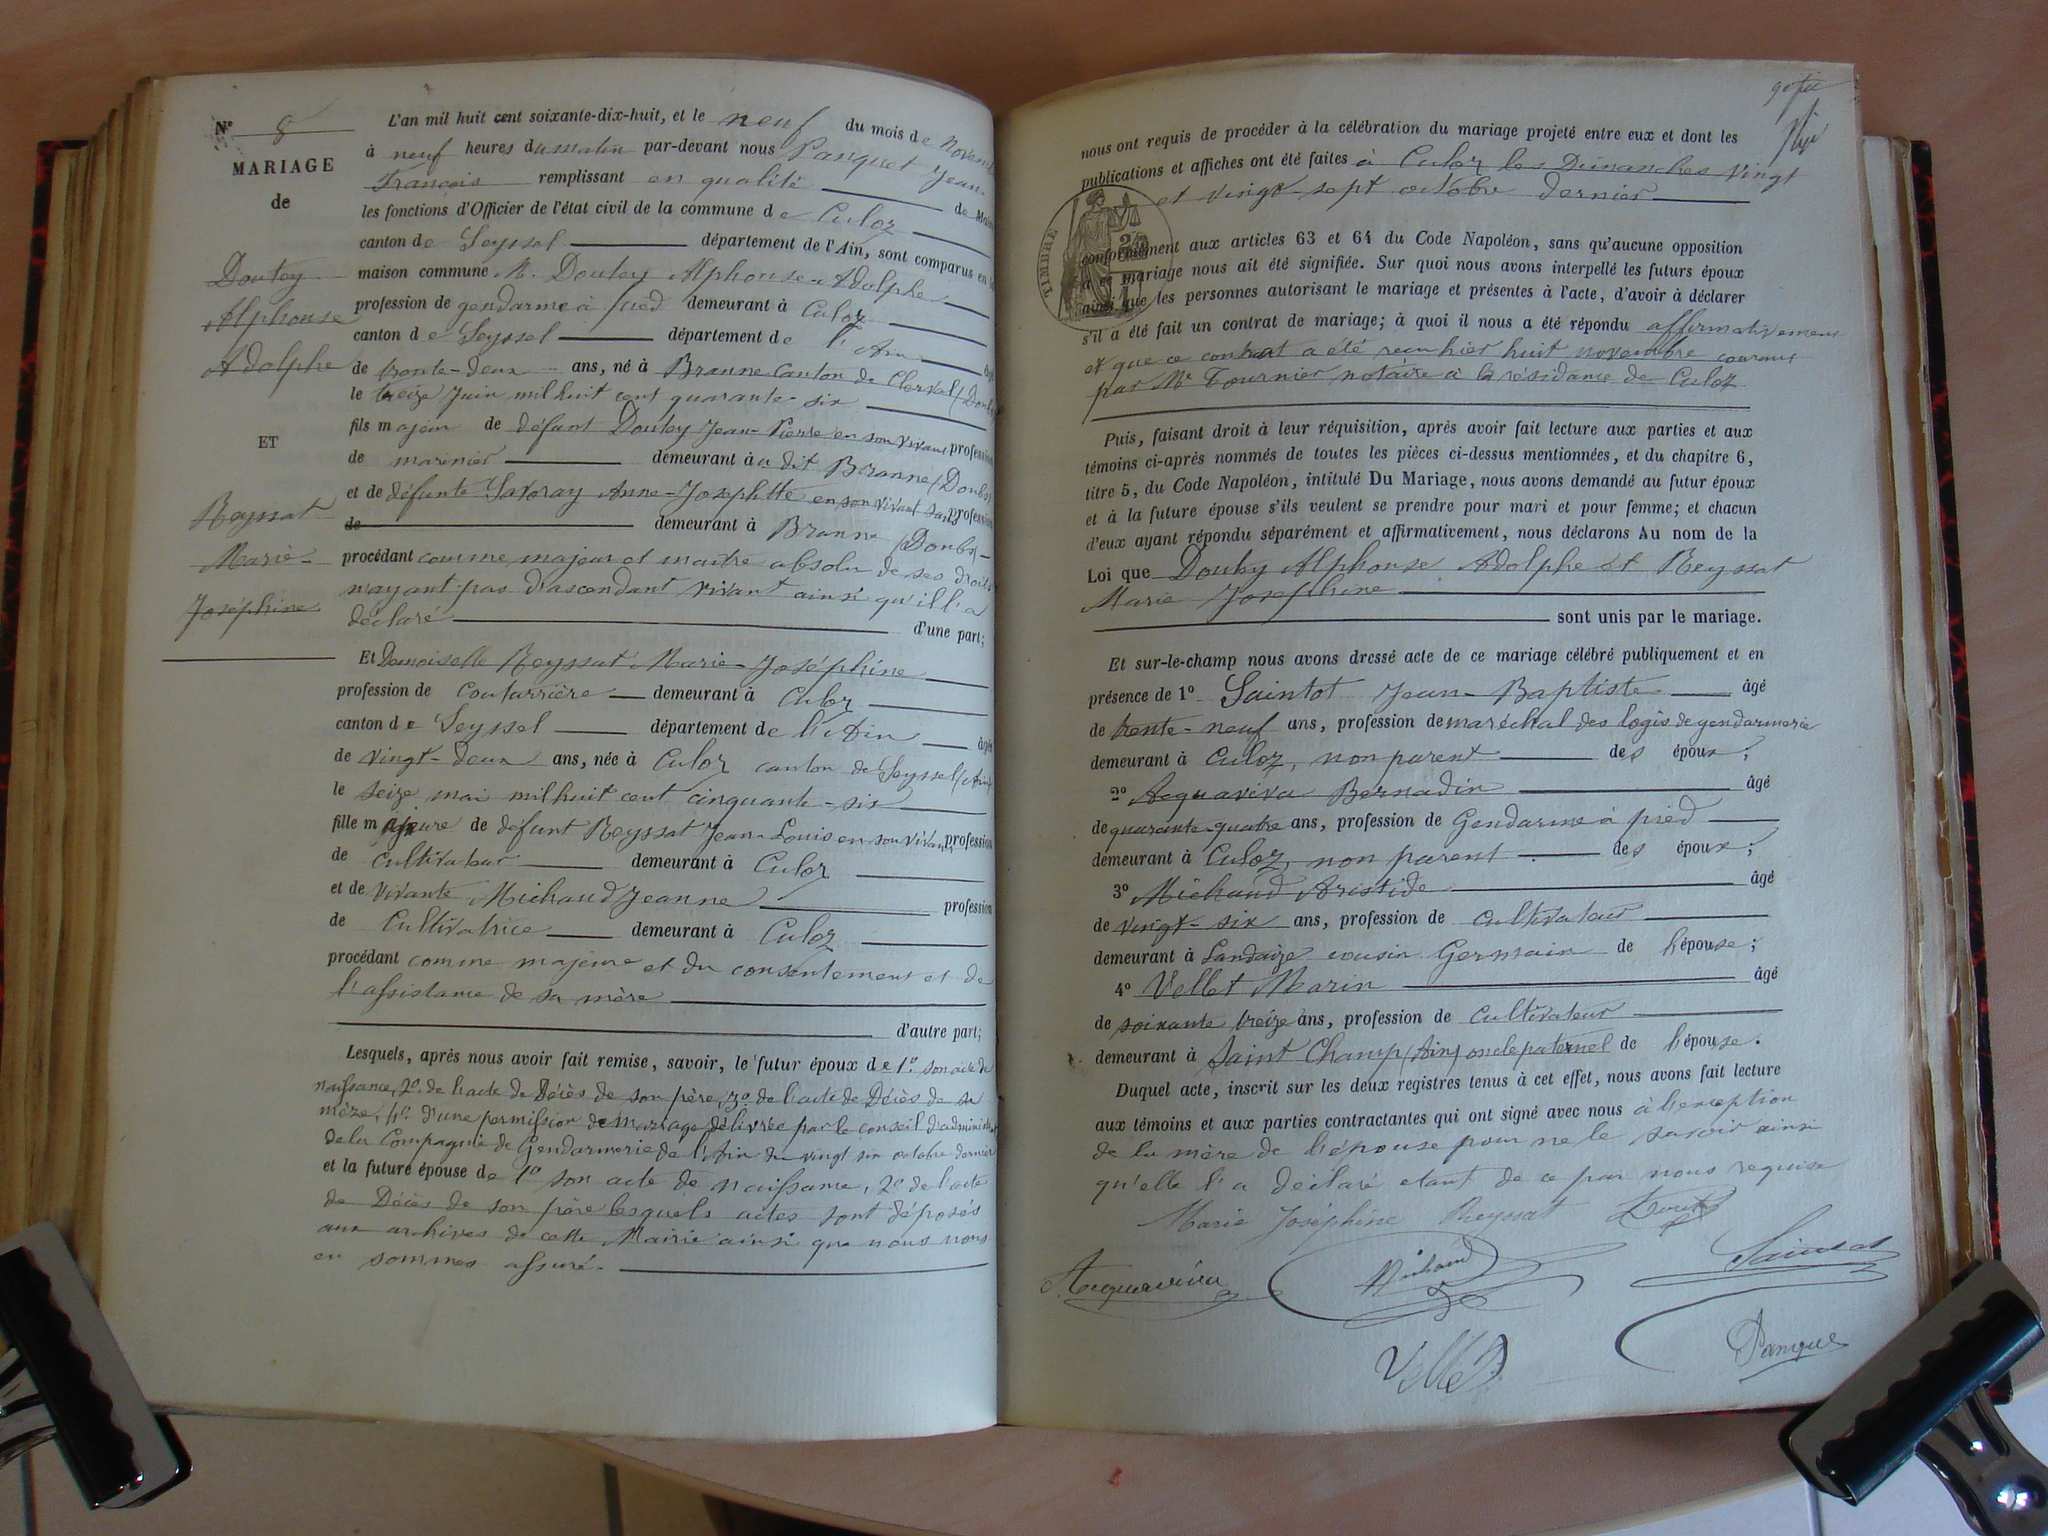 N° 8
MARIAGE
de
Doutey
Alphonse
Adolphe
ET
Reyssat
Marie
Joséphine
L'an mil huit cent soixante-dix-huit, et le neuf du mois de Novemb
à neuf heures du matin par-devant nous Panquet Jean
François remplissant en qualité de Maire
les fonctions d'Officier de l'état civil de la commune de Culoz
canton de Seyssel département de l'Ain, sont comparus en la
maison commune M. Doutey Alphonse-Adolphe
profession de gendarme à pied demeurant à Culoz
canton de Seyssel département de l'Ain âgé
de trente-deux ans, né à Branne Canton de Clerval (Doubs
le treize Juin mil huit cent quarante-six
fils majeur de défunt Doutey Jean-Pierre en son vivant profession
de marinier demeurant à u dit Branne (Doubs
et de défunte Savoray Anne-Josephtte en son vivant sans profession
de demeurant à Branne (Doubs)
procédant comme majeur et maître absolu de ses droits
n'ayant pas d'ascendant vivant ainsi qu'il l'a
déclaré d'une part;
Et Demoiselle Reyssat Marie-Joséphine
profession de couturrière demeurant à Culoz
canton de Seyssel département de l'Ain âgée
de vingt-deux ans, née à Culoz canton de Seyssel (Ain)
le seize mai mil huit cent cinquante-six
fille majeure de défunt Reyssat Jean-Louis en son vivant profession
de cultivateur demeurant à Culoz
et de vivante Michaud Jeanne profession
de Cultivatrice demeurant à Culoz
procédant comme majeure et du consentement et de
l'assistance de sa mère
d'autre part;
Lesquels, après nous avoir fait remise, savoir, le futur époux de 1° son acte de
naissance, 2° de l'acte de Décès de son père, 3° de l'acte de Décès de sa
mère, 4° d'une permission de mariage délivrée par le conseil d'administ
de la Compagnie de Gendarmerie de l'Ain du vingt six octobre dernier
et la future épouse de 1° son acte de naissance, 2° de l'acte
de Décès de son père lesquels actes sont déposés
aux archives de cette Mairie ainsi que nous nous
en sommes assuré.
nous ont requis de procéder à la célébration du mariage projeté entre eux et dont les
publications et affiches ont été faites à Culoz les Dimanches vingt
et vingt-sept octobre dernier
TIMBRE
conformément aux articles 63 et 64 du Code Napoléon, sans qu'aucune opposition
à ce mariage nous ait été signifiée. Sur quoi nous avons interpellé les futurs époux
ainsi que les personnes autorisant le mariage et présentes à l'acte, d'avoir à déclarer
s'il a été fait un contrat de mariage; à quoi il nous a été répondu affirmativement
et que ce contrat a été reçu hier huit novembre courant
par Me Tournier notaire à la résidance de Culoz
Puis, faisant droit à leur réquisition, après avoir fait lecture aux parties et aux
témoins ci-après nommés de toutes les pièces ci-dessus mentionnées, et du chapitre 6,
titre 5, du Code Napoléon, intitulé Du Mariage, nous avons demandé au futur époux
et à la future épouse s'ils veulent se prendre pour mari et pour femme; et chacun
d'eux ayant répondu séparément et affirmativement, nous déclarons Au nom de la
Loi que Doutey Alphonse Adolphe et Reyssat
Marie Josephine
sont unis par le mariage.
Et sur-le-champ nous avons dressé acte de ce mariage célébré publiquement et en
présence de 1° Saintot Jean-Baptiste âgé
de trente-neuf ans, profession de maréchal des logis de gendarmerie
demeurant à Culoz, non parent des époux;
2° Acquaviva Bernadin âgé
de quarante-quatre ans, profession de Gendarme à pied
demeurant à Culoz, non parent des époux;
3° Michaud Aristide âgé
de vingt-six ans, profession de cultivateur
demeurant à Landaize cousin Germain de l'épouse;
4° Vellet Marin âgé
de soixante treize ans, profession de cultivateur
demeurant à Saint Champ (Ain) oncle paternel de l'épouse.
Duquel acte, inscrit sur les deux registres tenus à cet effet, nous avons fait lecture
aux témoins et aux parties contractantes qui ont signé avec nous à l'exception
de la mère de l'épouse pour ne le savoir ainsi
qu'elle l'a déclaré etant de ce par nous requise
Marie Joséphine Reyssat Doutey
Acquaviva Michaud Saintot
Vellet Panquet